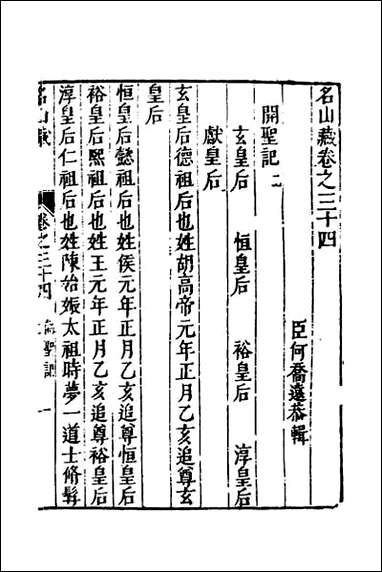 名山藏卷之三十四
臣何喬遠恭輯
開聖記二
玄皇后 恒皇后 裕皇后 淳皇后
獻皇后
玄皇后德祖后也姓胡高帝元年正月乙亥追尊玄
皇后
恒皇后懿祖后也姓侯元年正月乙亥追尊恒皇后
裕皇后熙祖后也姓王元年正月乙亥追尊裕皇后
淳皇后仁祖后也姓陳始娠太祖時夢一道士脩髯
名山藏 卷之三十四 開聖記 一